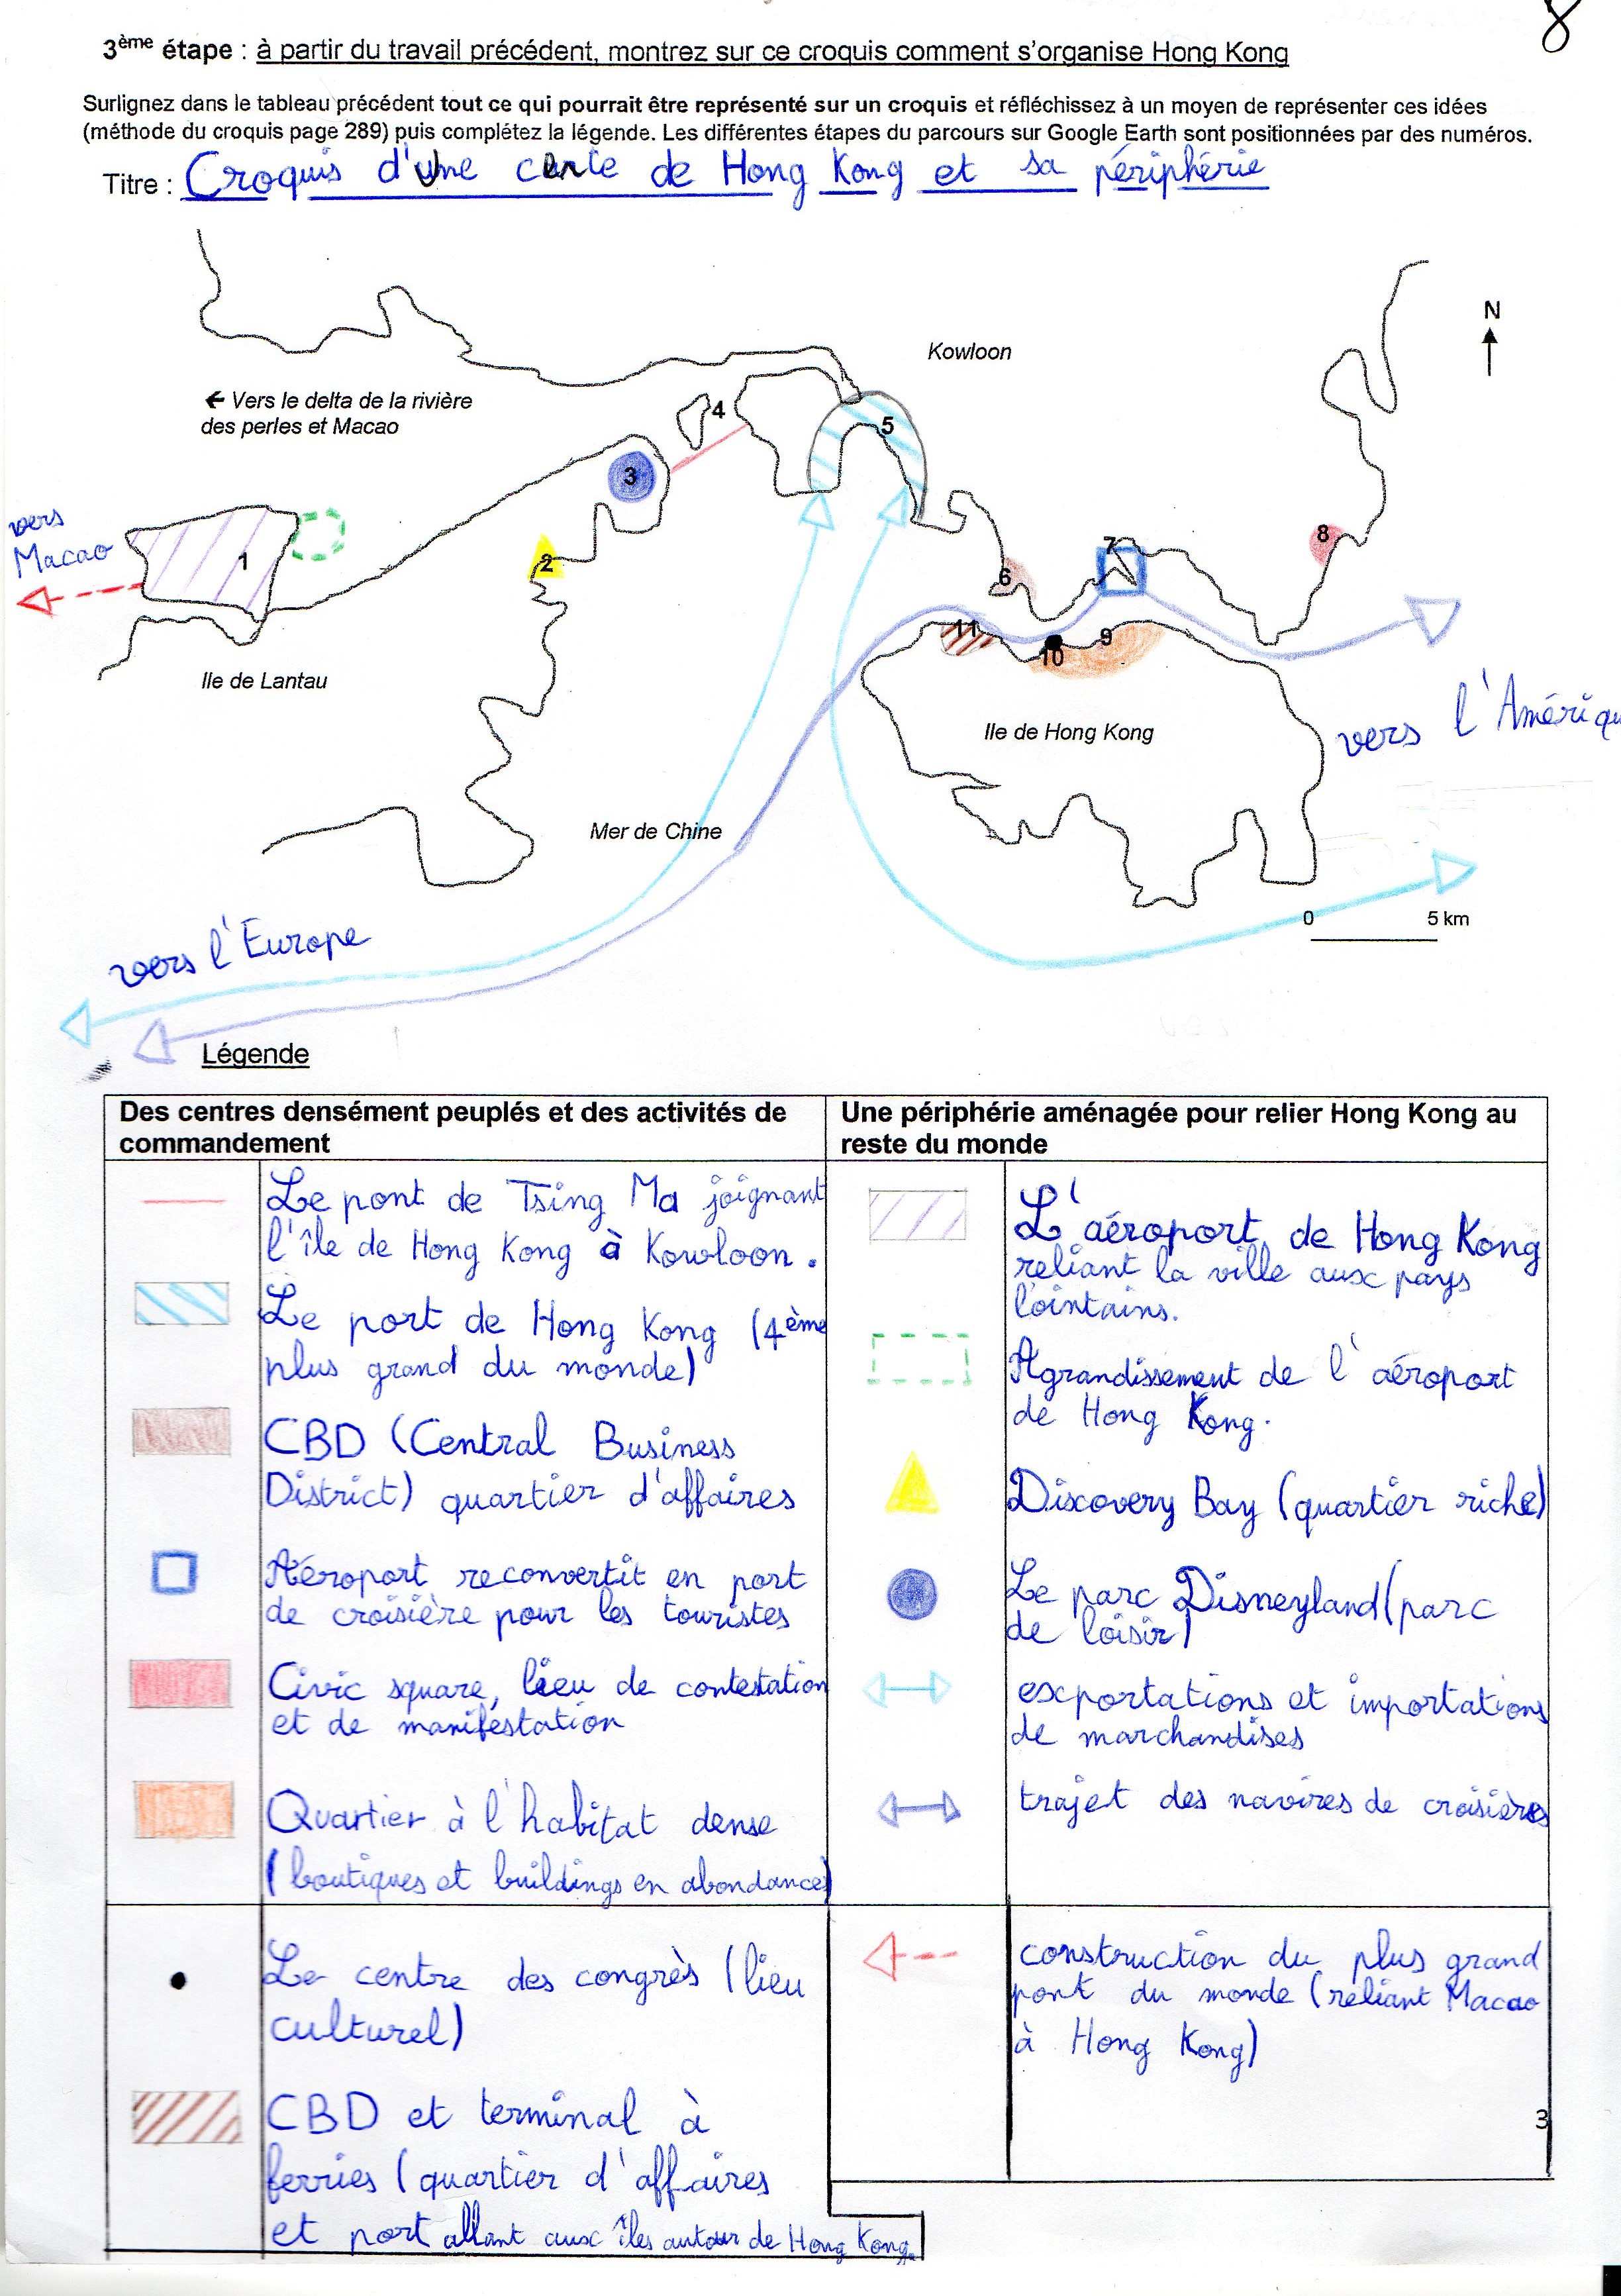 8
3ème étape : à partir du travail précédent, montrez sur ce croquis comment s'organise Hong Kong
Surlignez dans le tableau précédent tout ce qui pourrait être représenté sur un croquis et réfléchissez à un moyen de représenter ces idées
(méthode du croquis page 289) puis complétez la légende. Les différentes étapes du parcours sur Google Earth sont positionnées par des numéros.
Titre : Croquis d'une carte de Hong Kong et sa périphérie
N
Kowloon
← Vers le delta de la rivière
des perles et Macao
4
5
3
vers
Macao
1
2
8
7
6
11
9
10
Ile de Lantau
Ile de Hong Kong
vers l'Amériqu
Mer de Chine
0 5 km
vers l'Europe
Légende
Des centres densément peuplés et des activités de
commandement
Le pont de Tsing Ma joignant
l'île de Hong Kong à Kowloon.
Le port de Hong Kong (4ème
plus grand du monde)
CBD (Central Business
District) quartier d'affaires
Aéroport reconvertit en port
de croisière pour les touristes
Civic square, lieu de contestation
et de manifestation
Quartier à l'habitat dense
(boutiques et buildings en abondance)
Le centre des congrès (lieu
culturel)
CBD et terminal à
ferries (quartier d'affaires
et port allant aux îles autour de Hong Kong.
Une périphérie aménagée pour relier Hong Kong au
reste du monde
L'aéroport de Hong Kong
reliant la ville aux pays
lointains.
Agrandissement de l'aéroport
de Hong Kong.
Discovery Bay (quartier riche)
Le parc Disneyland (parc
de loisir)
exportations et importations
de marchandises
trajet des navires de croisières
construction du plus grand
pont du monde (reliant Macao
à Hong Kong)
3